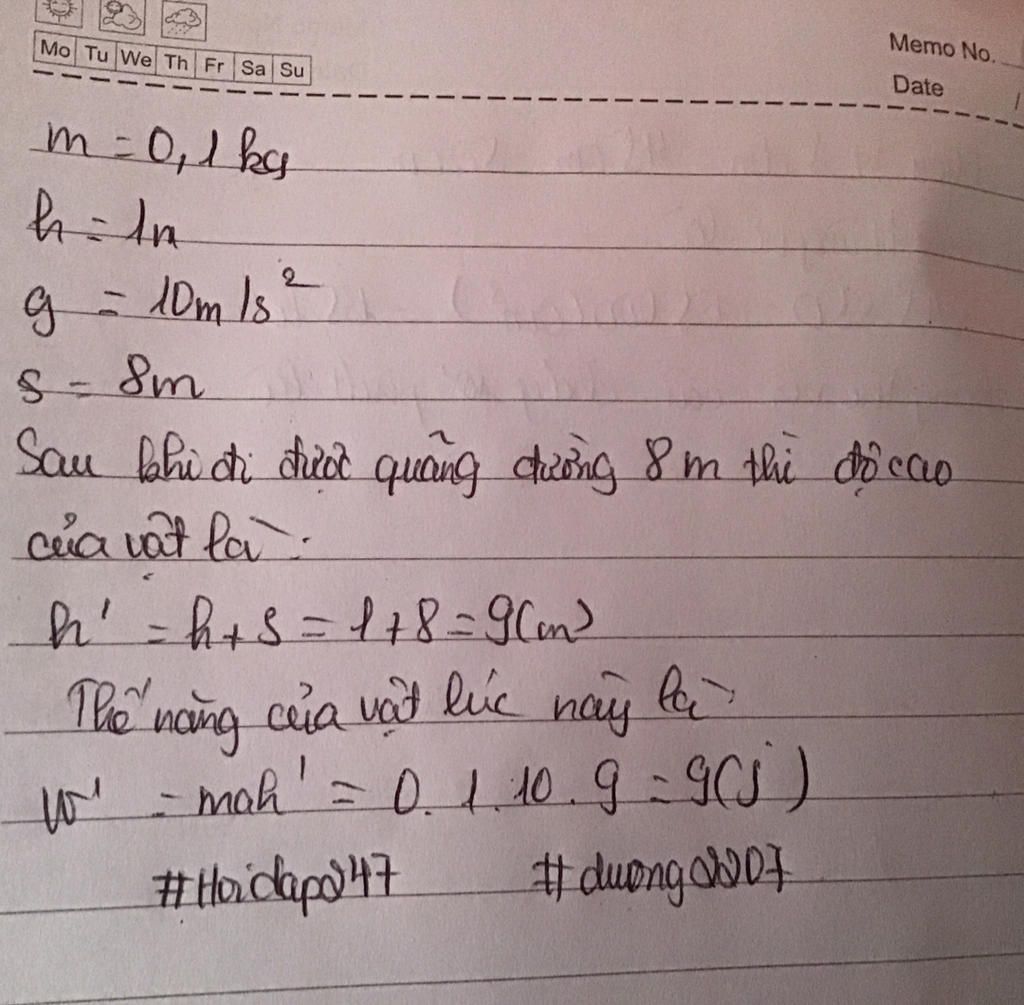 Mo Tu We Th Fr Sa Su
Memo No.
Date /
m = 0,1 kg
h = 1m
g = 10m/s²
s = 8m
Sau khi đi được quãng đường 8m thì độ cao
của vật là:
h' = h + s = 1 + 8 = 9(m)
Thế năng của vật lúc này là:
W' = mgh' = 0.1.10.9 = 9(j)
#Hoidap247 #duong02207